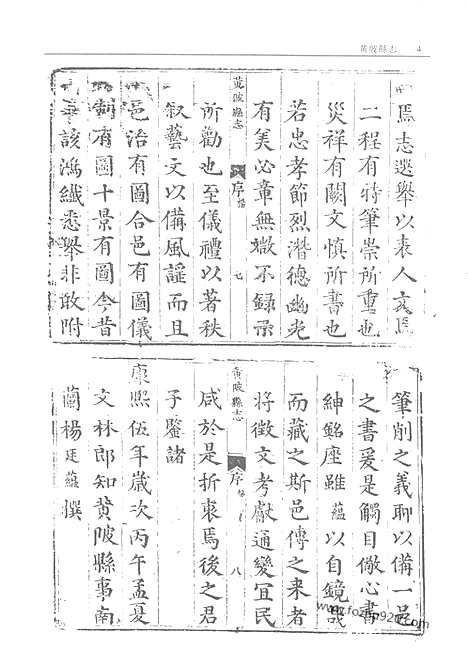 黃陂縣志 4
焉志選舉以表人文焉
二程有特筆崇所重也
災祥有闕文慎所書也
若忠孝節烈潛德幽光
有美必章無媺不錄示
黃陂縣志 序 七
所勸也至儀禮以著秩
敘藝文以備風謡而且
邑治有圖合邑有圖儀
制有圖十景有圖今昔
該鴻纖悉舉非敢附
筆削之義聊以備一邑
之書爰是觸目儆心書
紳銘座雖蘊以自鏡哉
而藏之斯邑傳之來者
將徵文考獻通變宜民
黃陂縣志 序 八
咸於是折衷焉後之君
子鑒諸
康熙伍年歲次丙午孟夏
文林郎知黃陂縣事南
蘭楊廷蘊撰